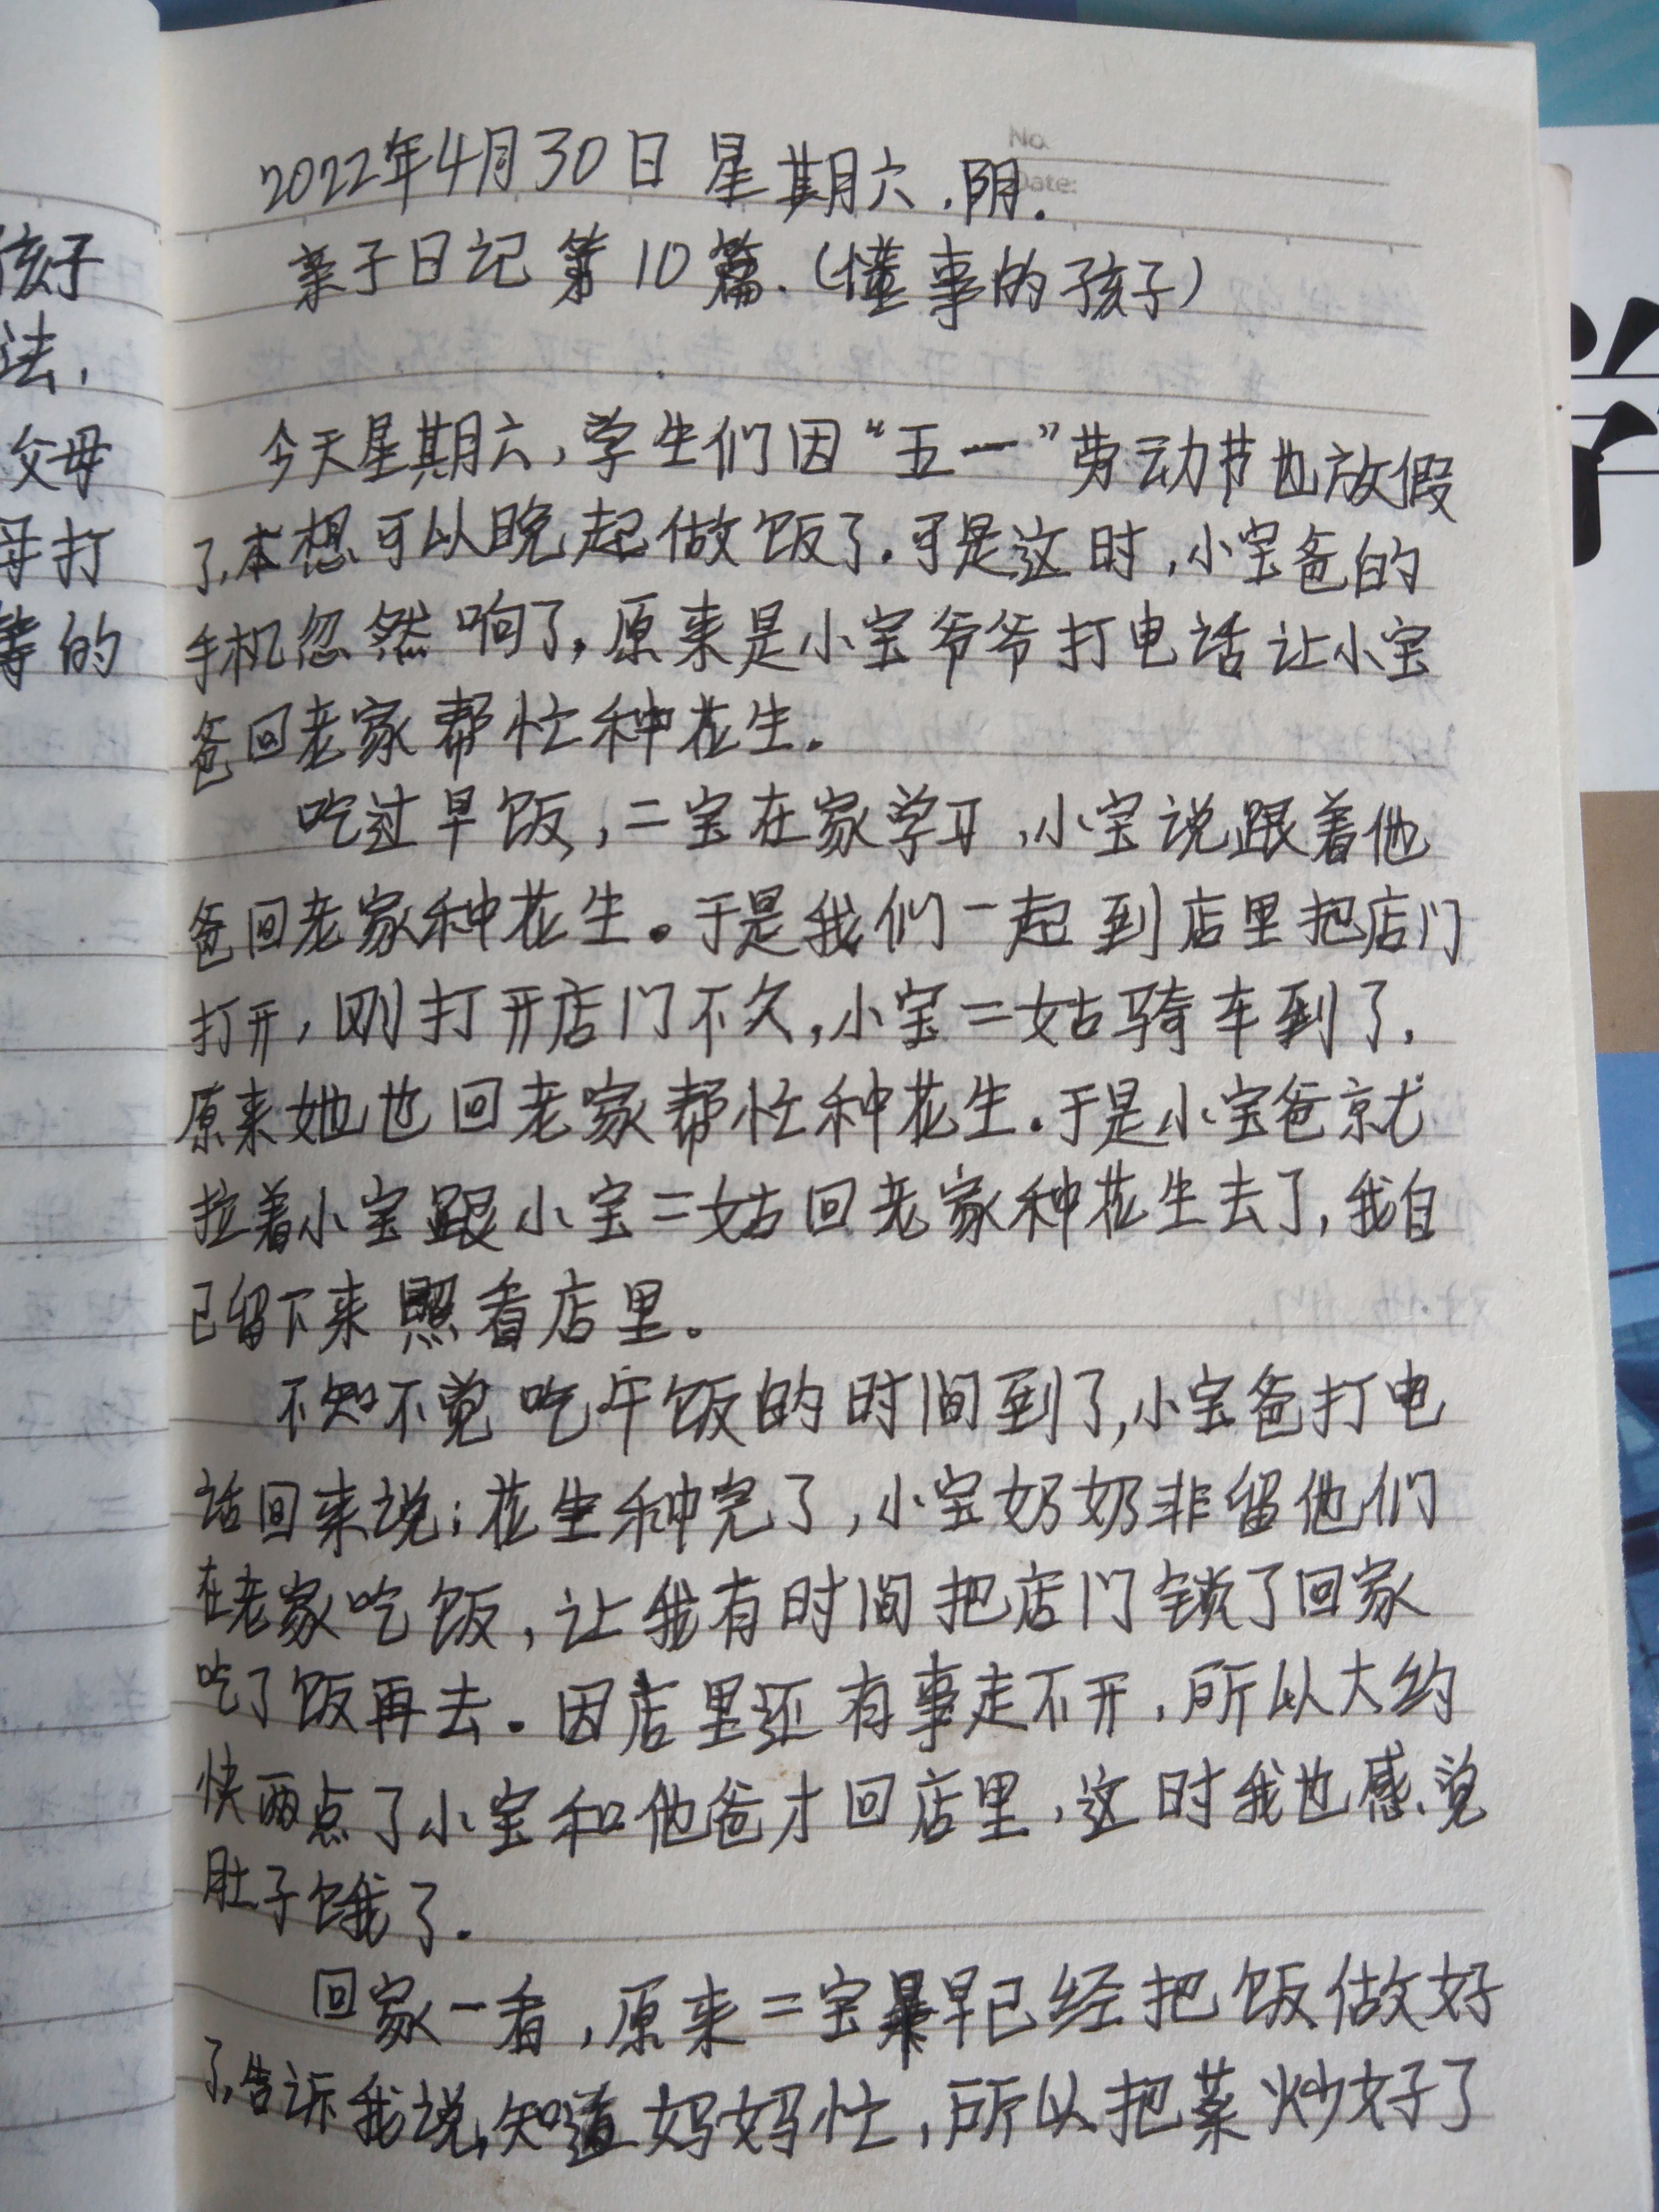 No.
Date:
2022年4月30日 星期六.阴.
亲子日记第10篇.(懂事的孩子)
今天星期六,学生们因“五一”劳动节也放假
了,本想可以晚起做饭了.可是这时,小宝爸的
手机忽然响了,原来是小宝爷爷打电话让小宝
爸回老家帮忙种花生.
吃过早饭,二宝在家学习,小宝说跟着他
爸回老家种花生。于是我们一起到店里把店门
打开,刚打开店门不久,小宝二姑骑车到了,
原来她也回老家帮忙种花生.于是小宝爸就
拉着小宝跟小宝二姑回老家种花生去了,我自
己留下来照看店里。
不知不觉吃午饭的时间到了,小宝爸打电
话回来说:花生种完了,小宝奶奶非留他们
在老家吃饭,让我有时间把店门锁了回家
吃了饭再去.因店里还有事走不开,所以大约
快两点了小宝和他爸才回店里,这时我也感觉
肚子饿了.
回家一看,原来二宝早已经把饭做好
了,告诉我说,知道妈妈忙,所以把菜炒好了
孩子
法,
父母
母打
等的
学